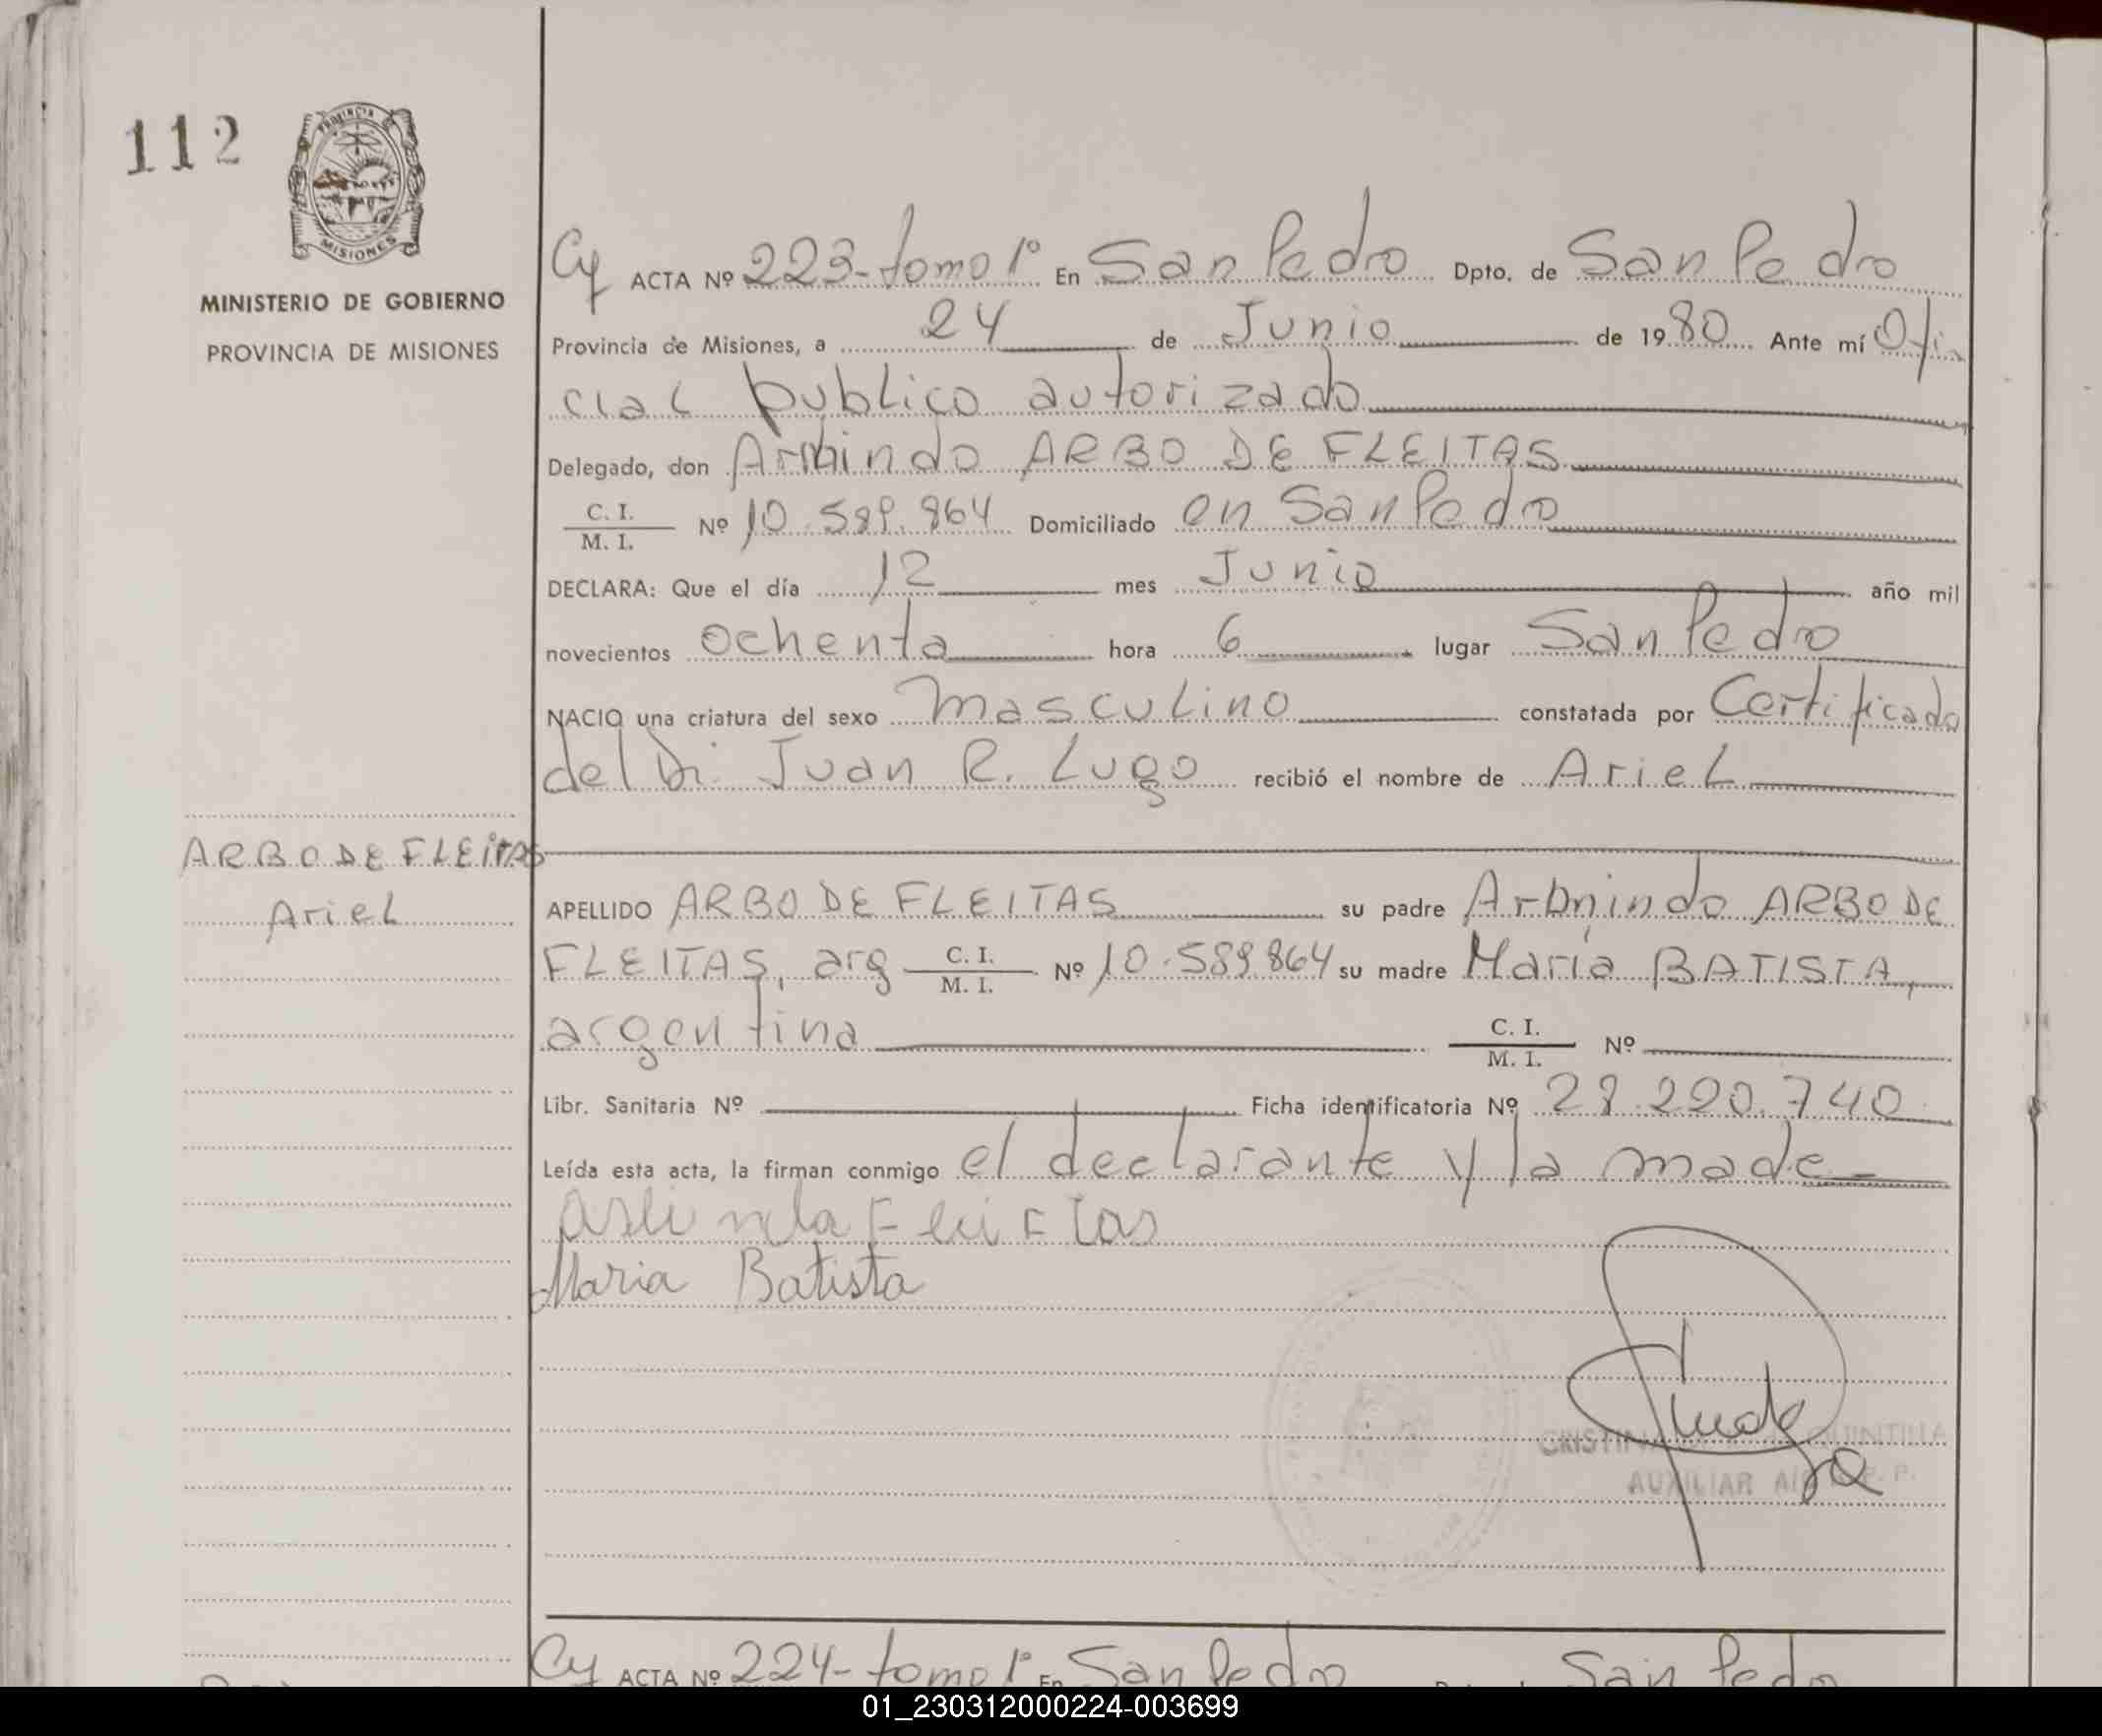 112
PROVINCIA DE
MISIONES
MINISTERIO DE GOBIERNO
PROVINCIA DE MISIONES
Cy ACTA Nº 223-tomo 1º En San Pedro Dpto. de San Pedro
Provincia de Misiones, a 24 de Junio de 1980 Ante mí Ofi
cial publico autorizado
Delegado, don ARBO DE FLEITAS
C. I.
M. I. Nº 10.589.864 Domiciliado en San Pedro
DECLARA: Que el día 12 mes Junio año mil
novecientos ochenta hora 6 lugar San Pedro
NACIO una criatura del sexo masculino constatada por Certificado
del Dr. Juan R. Lugo recibió el nombre de Ariel
ARBO DE FLEITAS
Ariel
APELLIDO ARBO DE FLEITAS su padre ARBO DE
FLEITAS, arg C. I.
M. I. Nº 10.589.864 su madre María BATISTA,
argentina C. I.
M. I. Nº
Libr. Sanitaria Nº Ficha identificatoria Nº 28.220.740
Leída esta acta, la firman conmigo el declarante y la madre
Maria Batista
AUXILIAR
Cy ACTA Nº 224-tomo 1º En San Pedro San Pedro
01_230312000224-003699